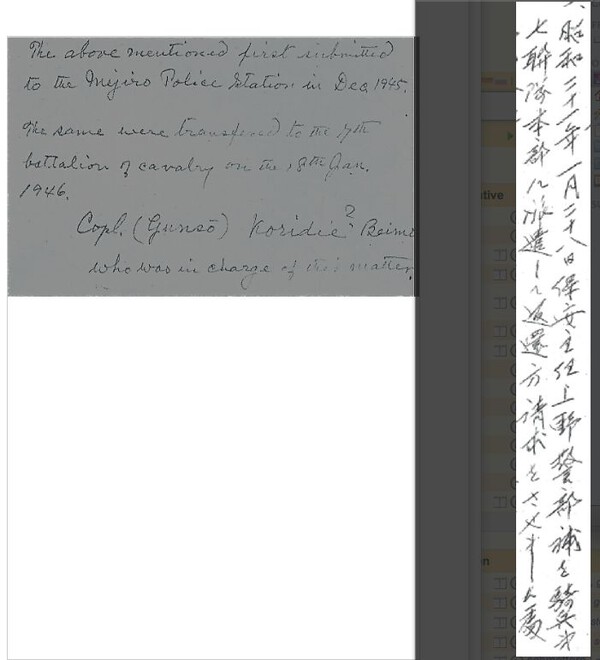 The above mentioned first submitted
to the Mejiro Police Station in Dec. 1945.
The same were transfered to the 7th
battalion of cavalry on the 18th Jan.
1946.
Copl. (Gunsō) Koridie? Beim
who was in charge of this matter
tive
昭和二十一年一月二十八日保安主任上野警部補を騎兵第
七聯隊本部に派遣して返還方請求をさせました処